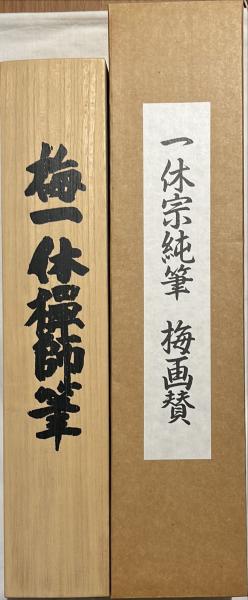 梅一休禅師筆
一休宗純筆 梅画賛